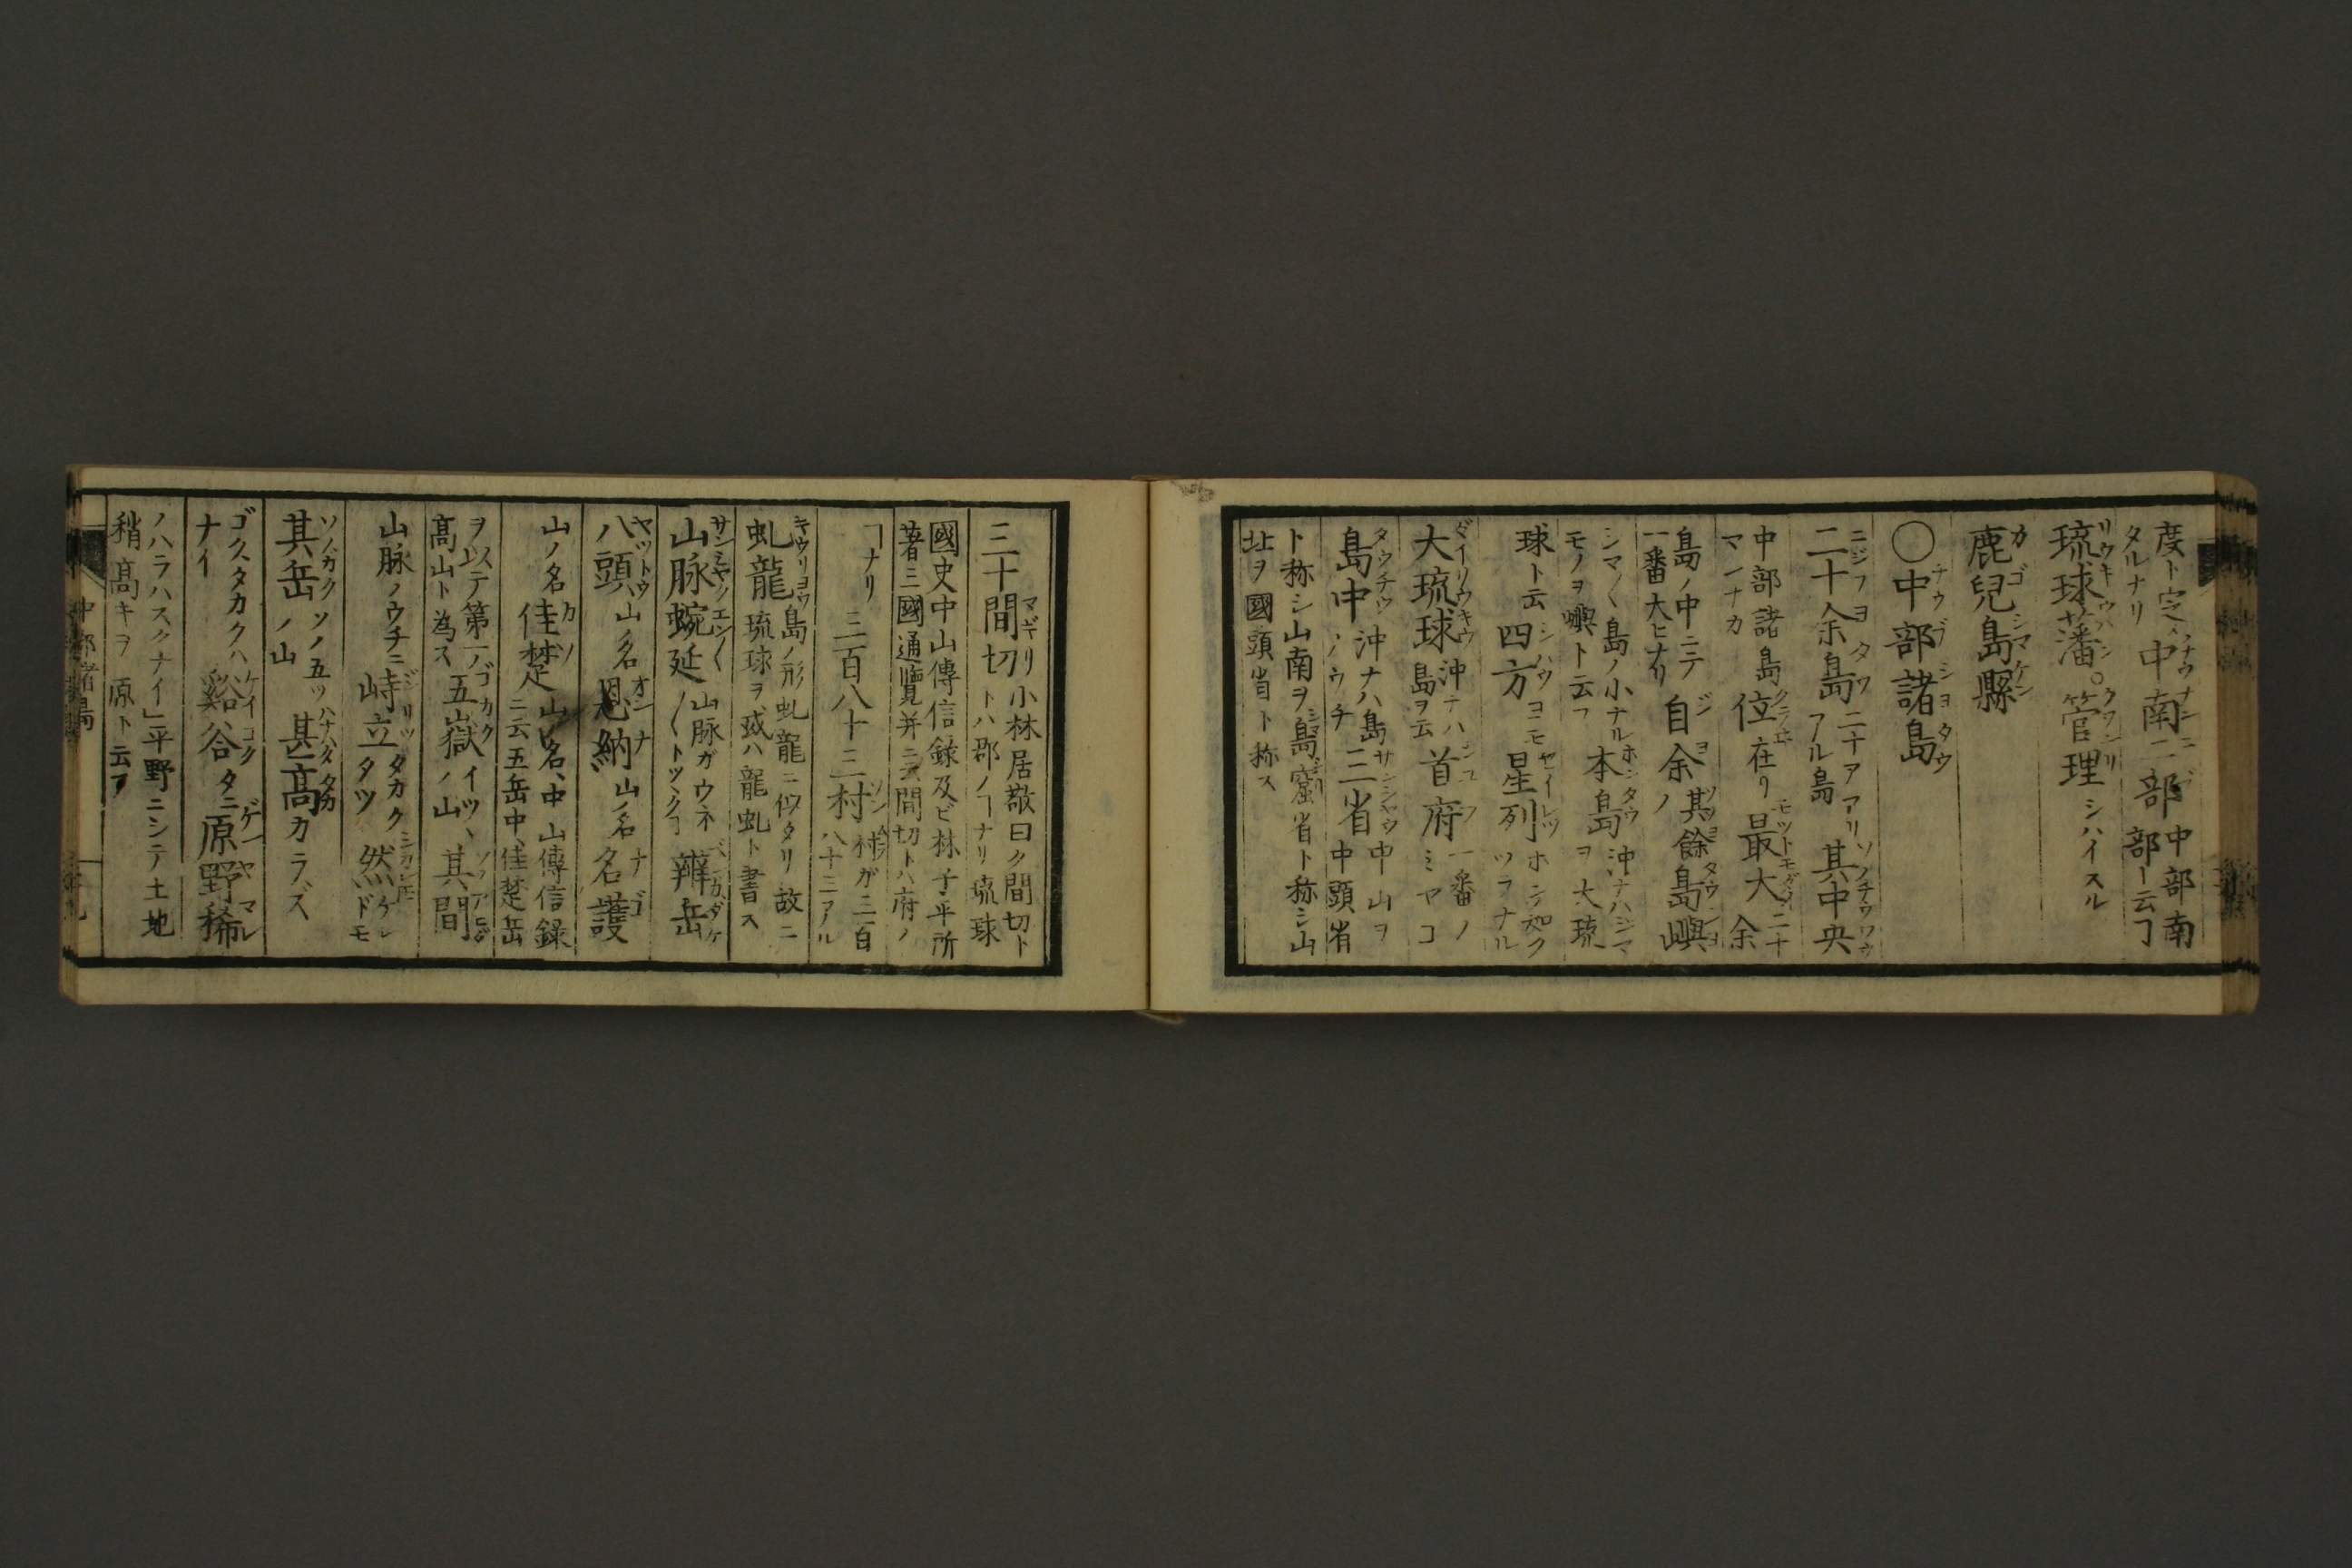 度ト定メタルナリ 中南二部 中部南部ト云フ
琉球藩。管理 シハイスル
鹿兒島縣
〇中部諸島
二十余島 二十アマリアル島 其中央
中部諸島マンナカ 位 在リ 最大 二十余
島ノ中ニテ一番大ヒナリ 自余ノ 其餘 島嶼
シマ〱島ノ小ナルモノヲ嶼ト云フ 本島 沖ナハシマヲ大琉
球ト云 四方 ヨニモ 星列 ホシノ如クツラナル
大琉球 沖ナハ島ヲ云 首府 一番ノミヤコ
島中 沖ナハ島ノウチ 三省 中山ヲ中頭省
ト称シ山南ヲ島窟省ト称シ山北ヲ國頭省ト称ス
三十間切 小林居敬曰ク間切トハ郡ノヿナリ琉球
國史中山傳信錄及ビ林子平所著三國通覽并ニ云間切トハ府ノ
ヿナリ 三百八十三村 村ガ三百八十三アル
虬龍 島ノ形虬龍ニ似タリ故ニ琉球ヲ或ハ龍虬ト書ス
山脉蜿延〱 山脉ガウネ〱トツヾクヿ 辨岳
八頭 山ノ名 恩納 山ノ名 名護
山ノ名 佳楚 山ノ名、中山傳信錄ニ云五岳中、佳楚岳
ヲ以テ第一ノ高山ト為ス 五嶽 イツヽノ山 其間
山脉ノウチニ 峙立 タカクタツ 然ドモ
其岳 ソノ五ツノ山 甚高カラズ
ゴク、タカクハナイ 谿谷 タニ 原野稀
ノハラハスクナイ」平野ニシテ土地稍高キヲ原ト云フ
中部諸島